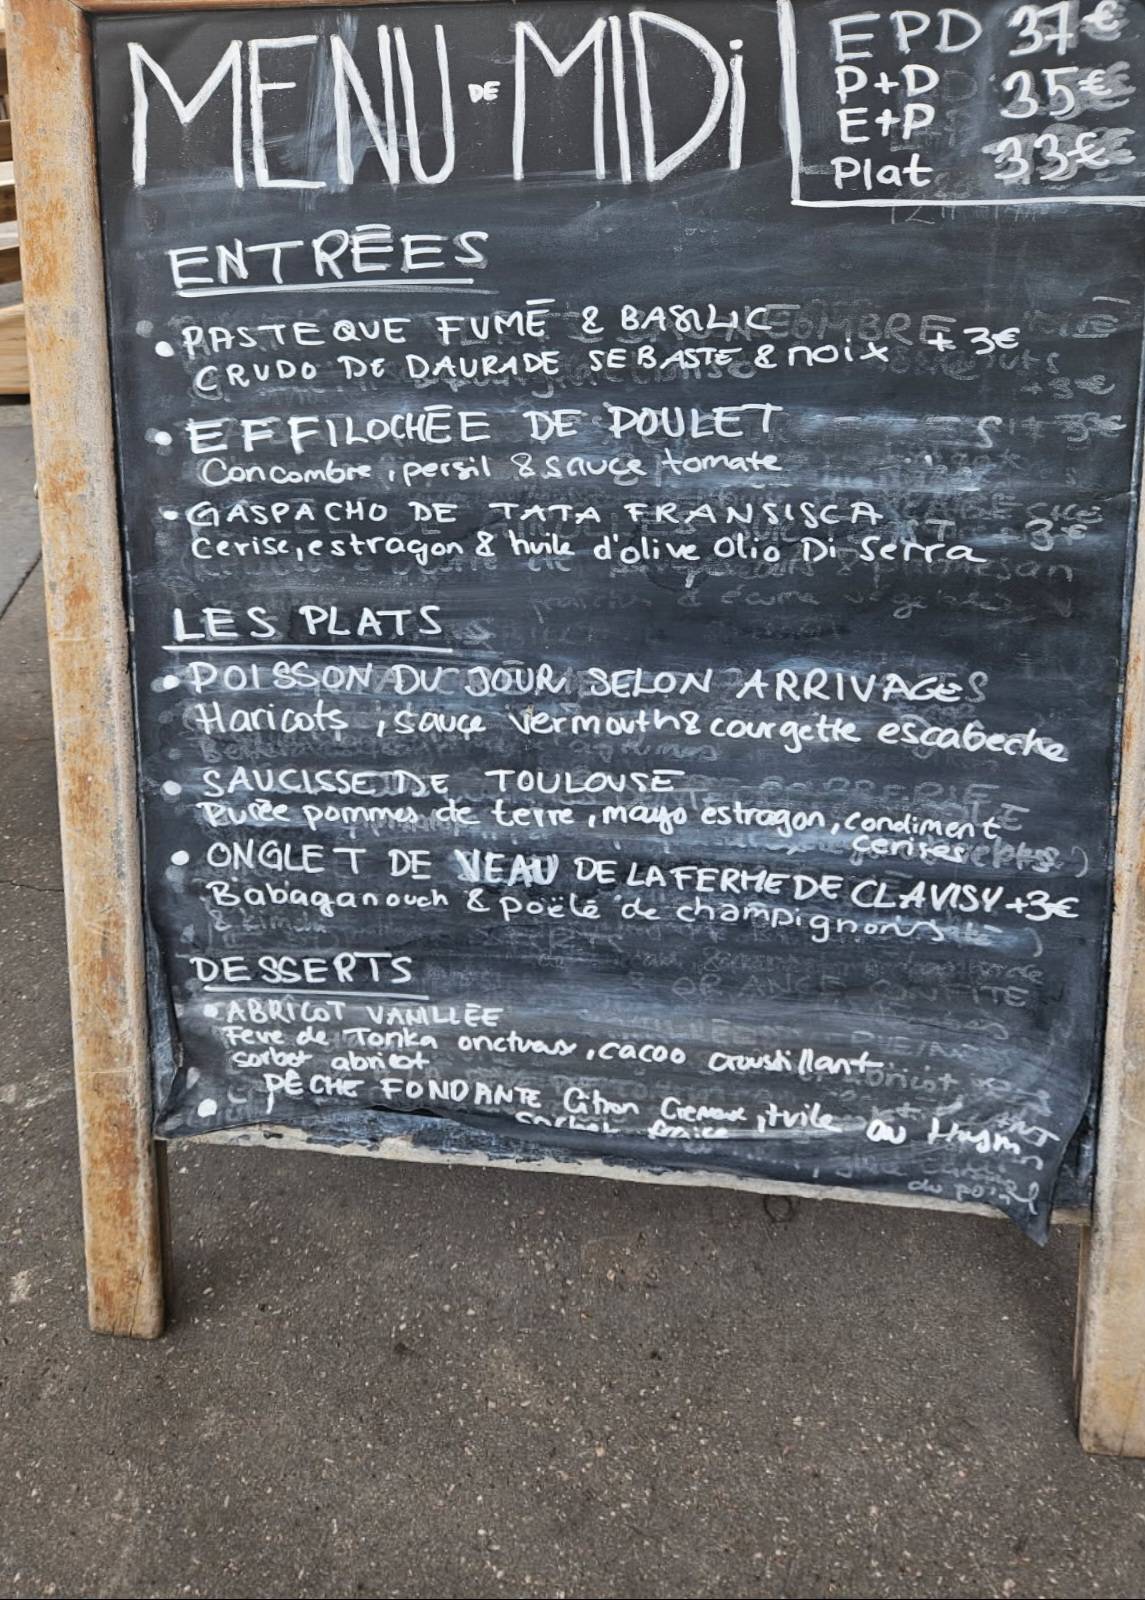 MENU DE MIDi
EPD 37€
P+D 35€
E+P
Plat 33€
ENTRÉES
• PASTEQUE FUMÉ & BASILIC
CRUDO DE DAURADE SEBASTE & noix +3€
• EFFILOCHÉE DE POULET
Concombre, persil & sauce tomate
• GASPACHO DE TATA FRANSISCA
Cerise, estragon & huile d'olive Olio Di Serra
LES PLATS
• POISSON DU JOUR SELON ARRIVAGES
Haricots, sauce vermouth & courgette escabeche
• SAUCISSE DE TOULOUSE
Purée pommes de terre, mayo estragon, condiment
cerises
• ONGLET DE VEAU DE LA FERME DE CLAVISY +3€
Babaganouch & poëlé de champignons
DESSERTS
• ABRICOT VANILLÉE
Feve de Tonka onctueux, cacao croustillant
sorbet abricot
• PÊCHE FONDANTE Citron Cremeux, tuile au
sorbet